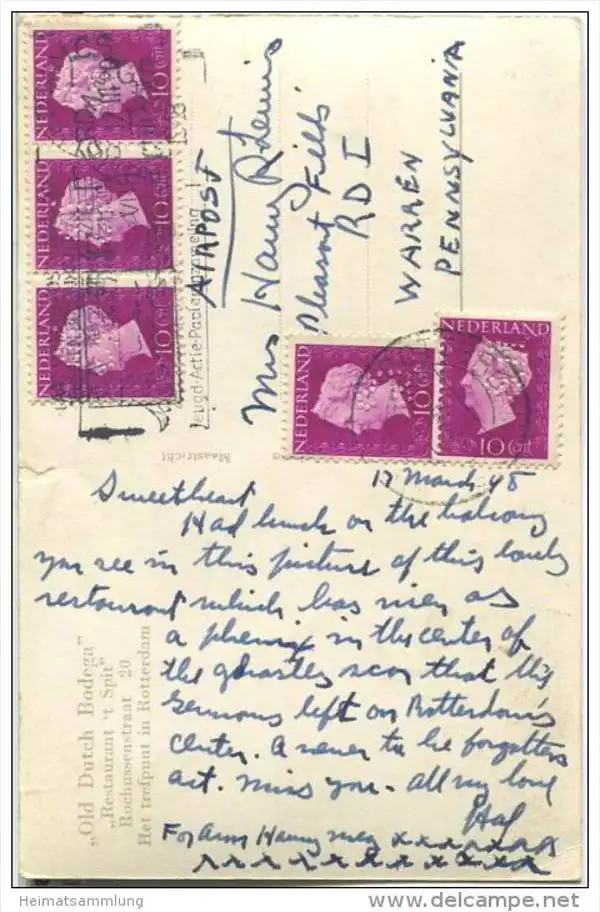 NEDERLAND 10 CENT
NEDERLAND 10 CENT
NEDERLAND 10 CENT
NEDERLAND 10 CENT
NEDERLAND 10 CENT
Jeugd-Actie-Papierinzameling
AIRPOST
Mrs Harry R Lewis
Pleasant Fields
RD I
WARREN
PENNSYLVANIA
Maastricht
17 March 48
Sweetheart
Had lunch on the balcony
you see in this picture of this lovely
restaurant which has risen as
a phenix in the center of
the ghastly scar that the
Germans left on Rotterdam's
center. A never to be forgotten
act. Miss you - all my love
Hal
For Ann Harry Meg xxxxxxxx
xxxxxxxxxxxx
„Old Dutch Bodega"
„Restaurant 't Spit"
Rochussenstraat 20
Het trefpunt in Rotterdam
Heimatsammlung
akpool.de